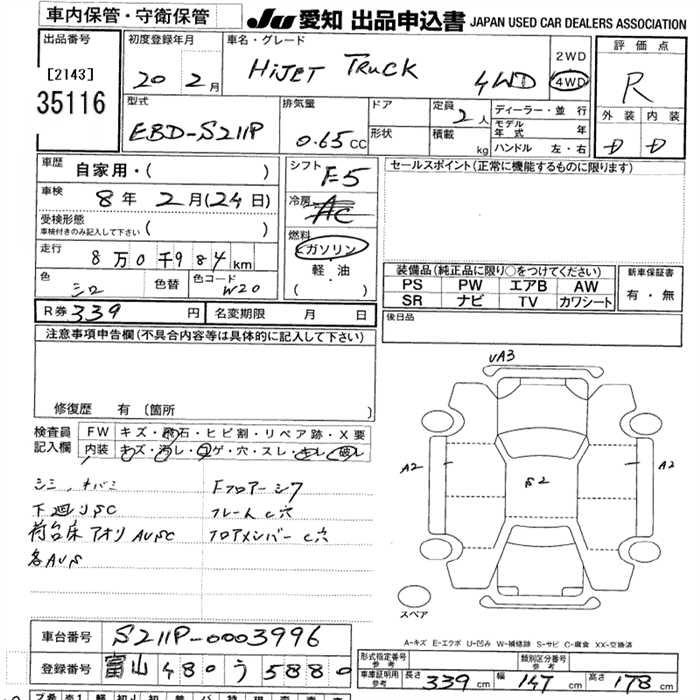 車内保管・守衛保管
JU 愛知 出品申込書 JAPAN USED CAR DEALERS ASSOCIATION
出品番号
[2143]
35116
初度登録年月
20 2月
車名・グレード
HiJET TRUCK 4WD
2WD
4WD
評価点
R
外装 内装
D D
型式
EBD-S211P
排気量
0.65CC
ドア
形状
定員
2人
積載
kg
ディーラー・並行
モデル年式 年
ハンドル 左・右
車歴
自家用・( )
車検
8年 2月(24日)
受検形態
車検付きのみ記入して下さい ( )
走行
8万0千984km
色
シロ
色替
色コード
W20
シフト
F5
冷房
AC
燃料
ガソリン
軽油
( )
セールスポイント(正常に機能するものに限ります)
装備品(純正品に限り○をつけてください)
PS PW エアB AW
SR ナビ TV カワシート
新車保証書
有・無
後日品
R券 339 円
名変期限 月 日
注意事項申告欄(不具合内容等は具体的に記入して下さい)
修復歴 有〔箇所 〕
検査員記入欄
FW キズ・飛石・ヒビ割・リペア跡・X要
内装 キズ・汚レ・コゲ・穴・スレ・キレ・破レ
シミ、キバミ
下廻りSC
荷台床アオリAUSC
各AUS
Fフロアーシワ
フレームC穴
フロアメンバーC穴
UA3
A2
S2
A2
スペア
A-キズ E-エクボ U-凹み W-補修跡 S-サビ C-腐食 XX-交換済
車台番号
S211P-0003996
登録番号
富山 480 う 5880
型式指定番号
参考
類別区分番号
参考
車庫証明用
参考
長さ 339cm 幅 147cm 高さ 178cm